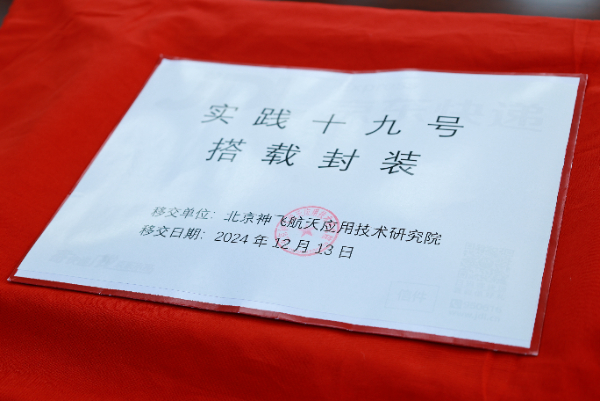 实践十九号
搭载封装
移交单位：北京神飞航天应用技术研究院
移交日期：2024年12月13日